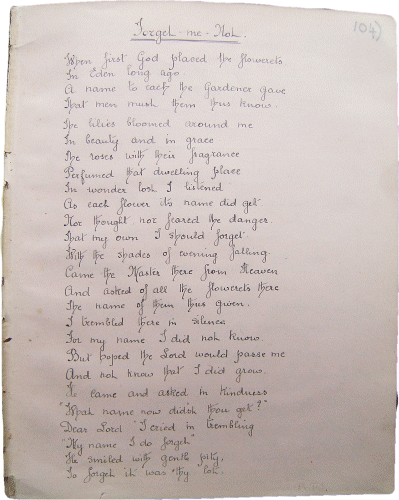 Forget-me-Not.
104)
When first God placed the flowerets
In Eden long ago.
A name to each the Gardener gave
That men might them thus know.
The lilies bloomed around me
In beauty and in grace
The roses with their fragrance
Perfumed that dwelling place
In wonder lost I listened
As each flower its name did get.
Nor thought nor feared the danger.
That my own I should forget.
With the shades of evening falling.
Came the Master there from Heaven
And asked of all the flowerets there
The name of them thus given.
I trembled there in silence
For my name I did not know
But hoped the Lord would passe me
And not know that I did grow.
He came and asked in kindness
"What name now didst thou get?"
Dear Lord "I cried in trembling
"My name I do forget"
He smiled with gentle pity.
To forget it was thy lot.